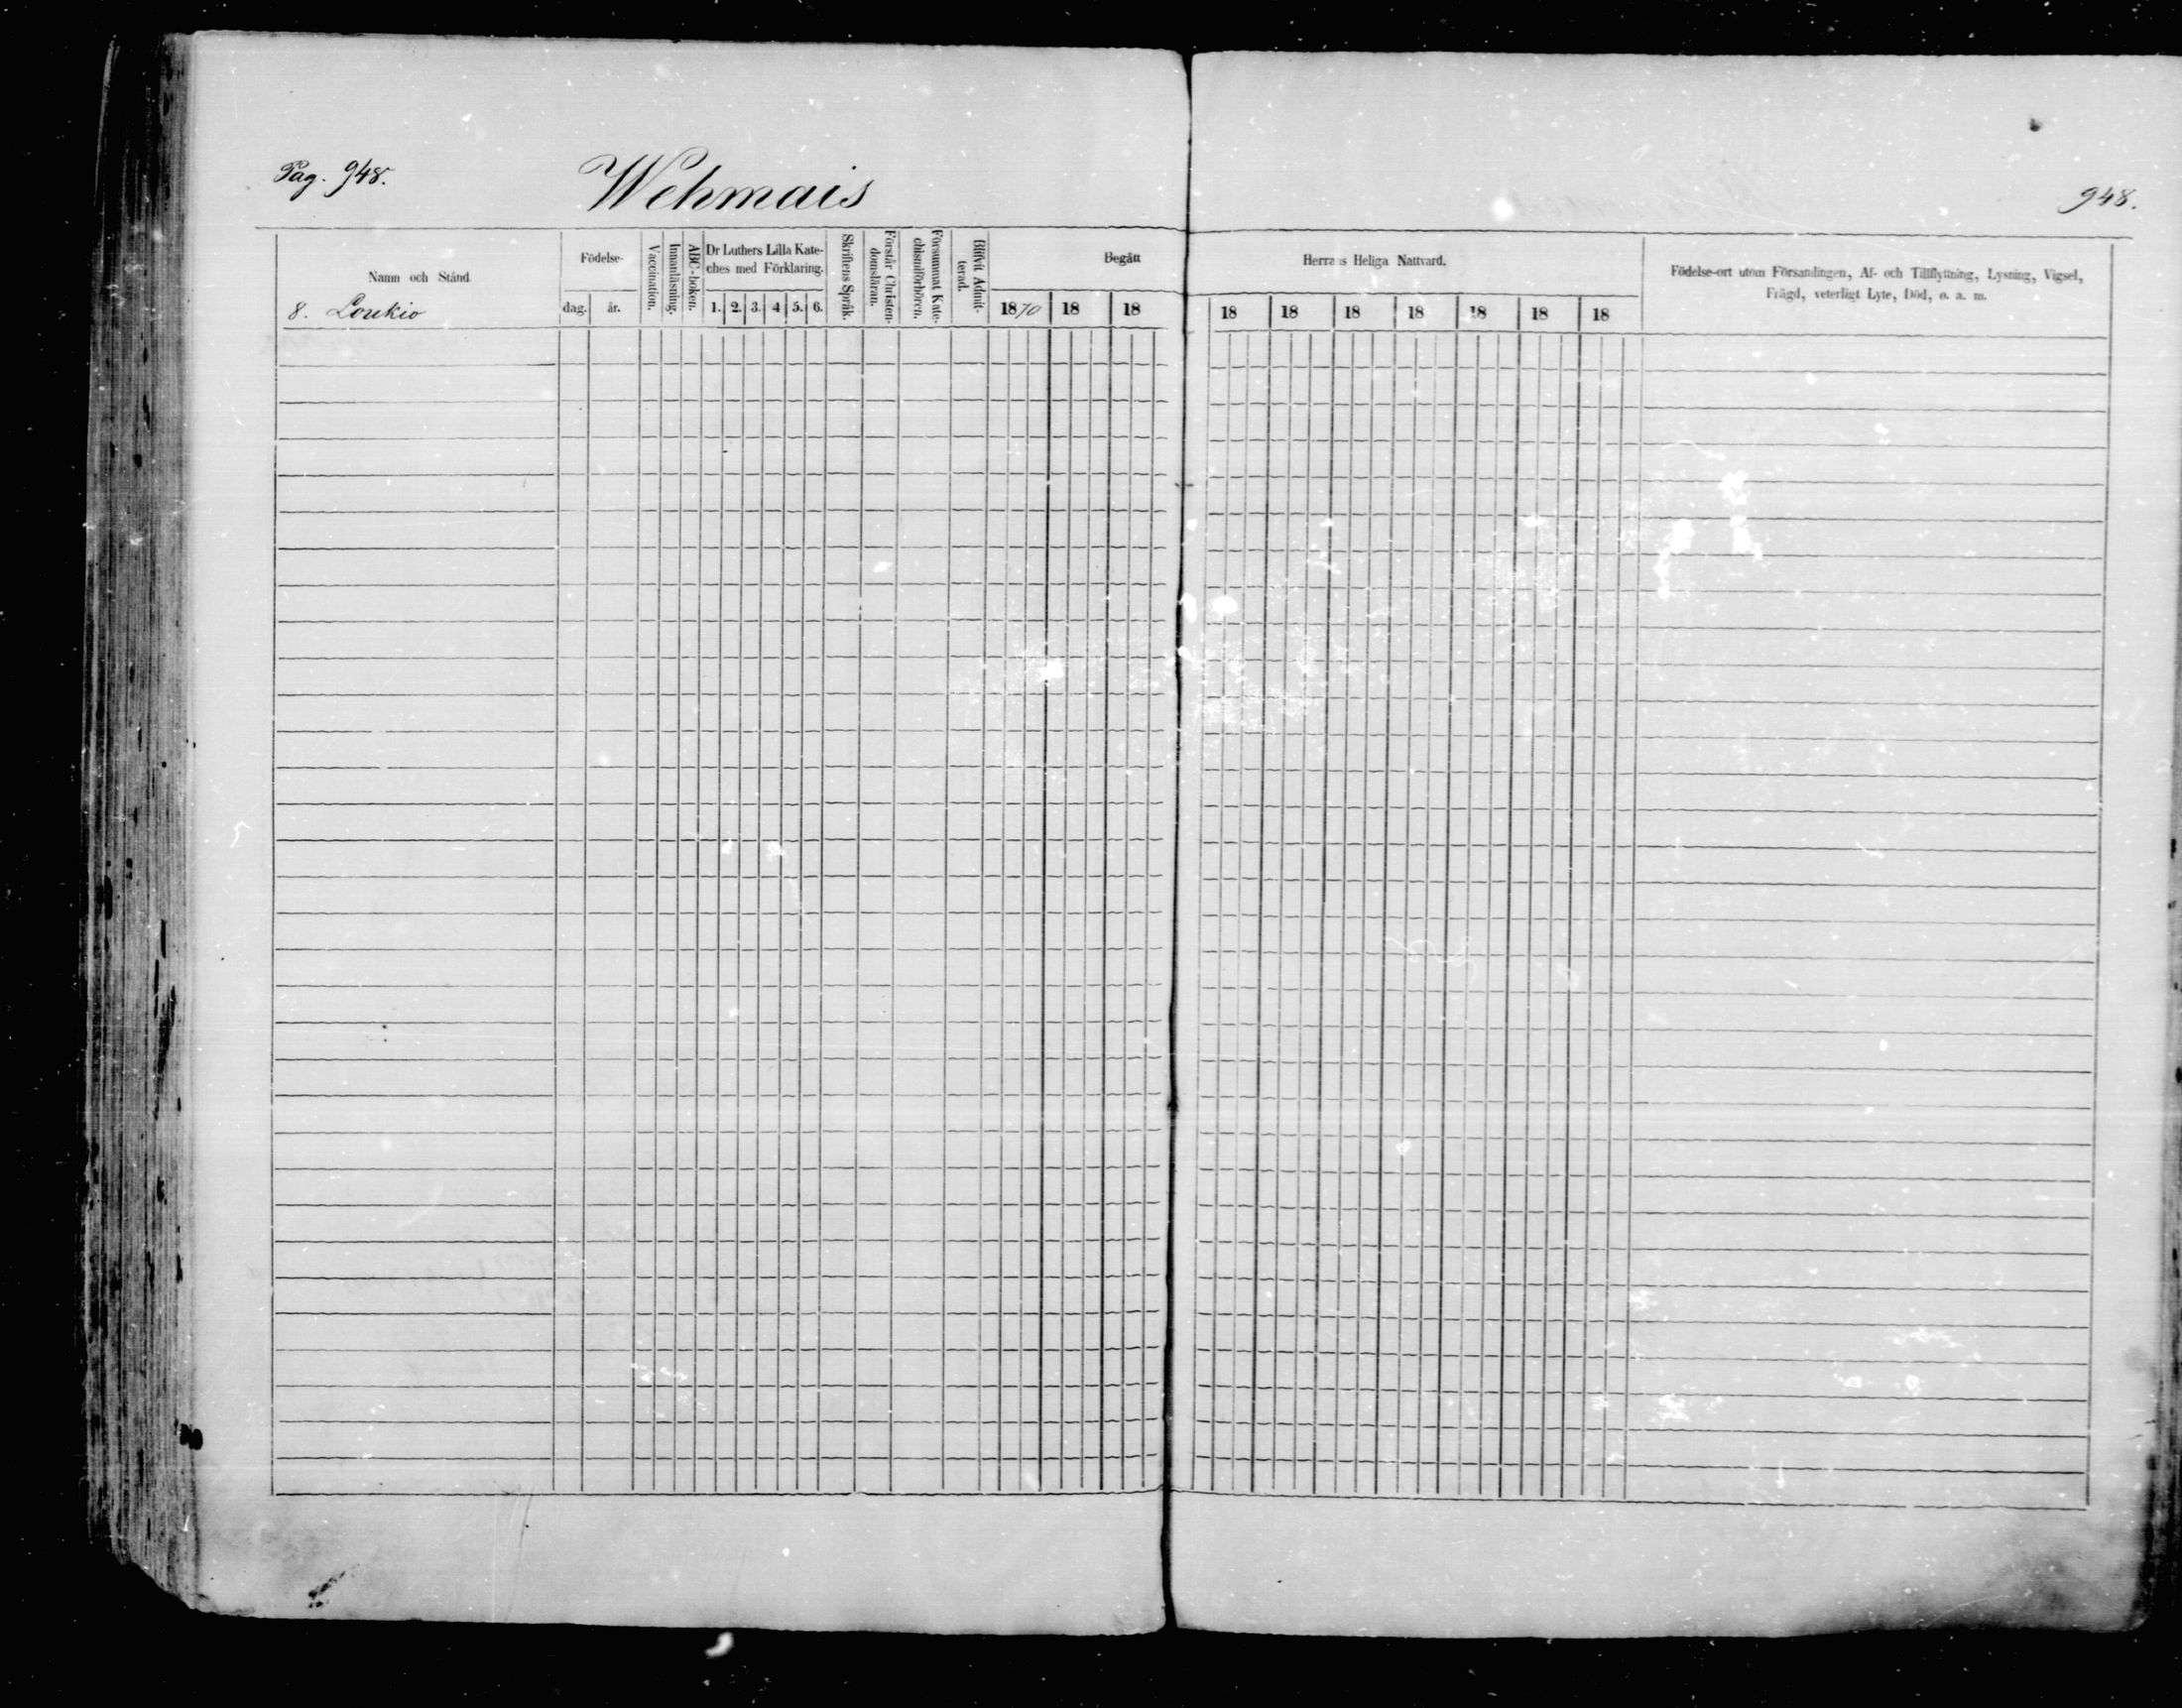 Pag. 948.
Wehmais
948.
Namn och Stånd
8. Loukio
Födelse-
dag. år.
Vaccination.
Innanläsning.
ABC-boken.
Dr Luthers Lilla Kate-
ches med Förklaring.
1. 2. 3. 4 5. 6.
Skriftens Språk.
Förstår Christen-
domsläran.
Försummat Kate-
chismiförhören.
Blifvit Admit-
terad.
Begått
1870 18 18
Herrans Heliga Nattvard.
18 18 18 18 18 18 18
Födelse-ort utom Församlingen, Af- och Tillflyttning, Lysning, Vigsel,
Frägd, veterligt Lyte, Död, o. a. m.